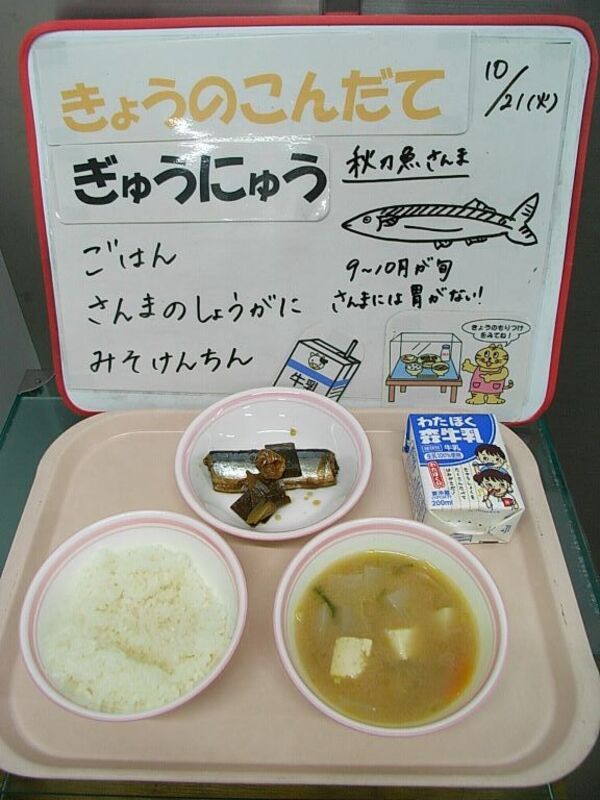 きょうのこんだて
10/21(火)
ぎゅうにゅう
ごはん
さんまのしょうがに
みそけんちん
秋刀魚さんま
9~10月が旬
さんまには胃がない!
牛乳
きょうのもりつけ
をみてね!
わたぼく
森牛乳
牛乳
生乳100%使用
200ml